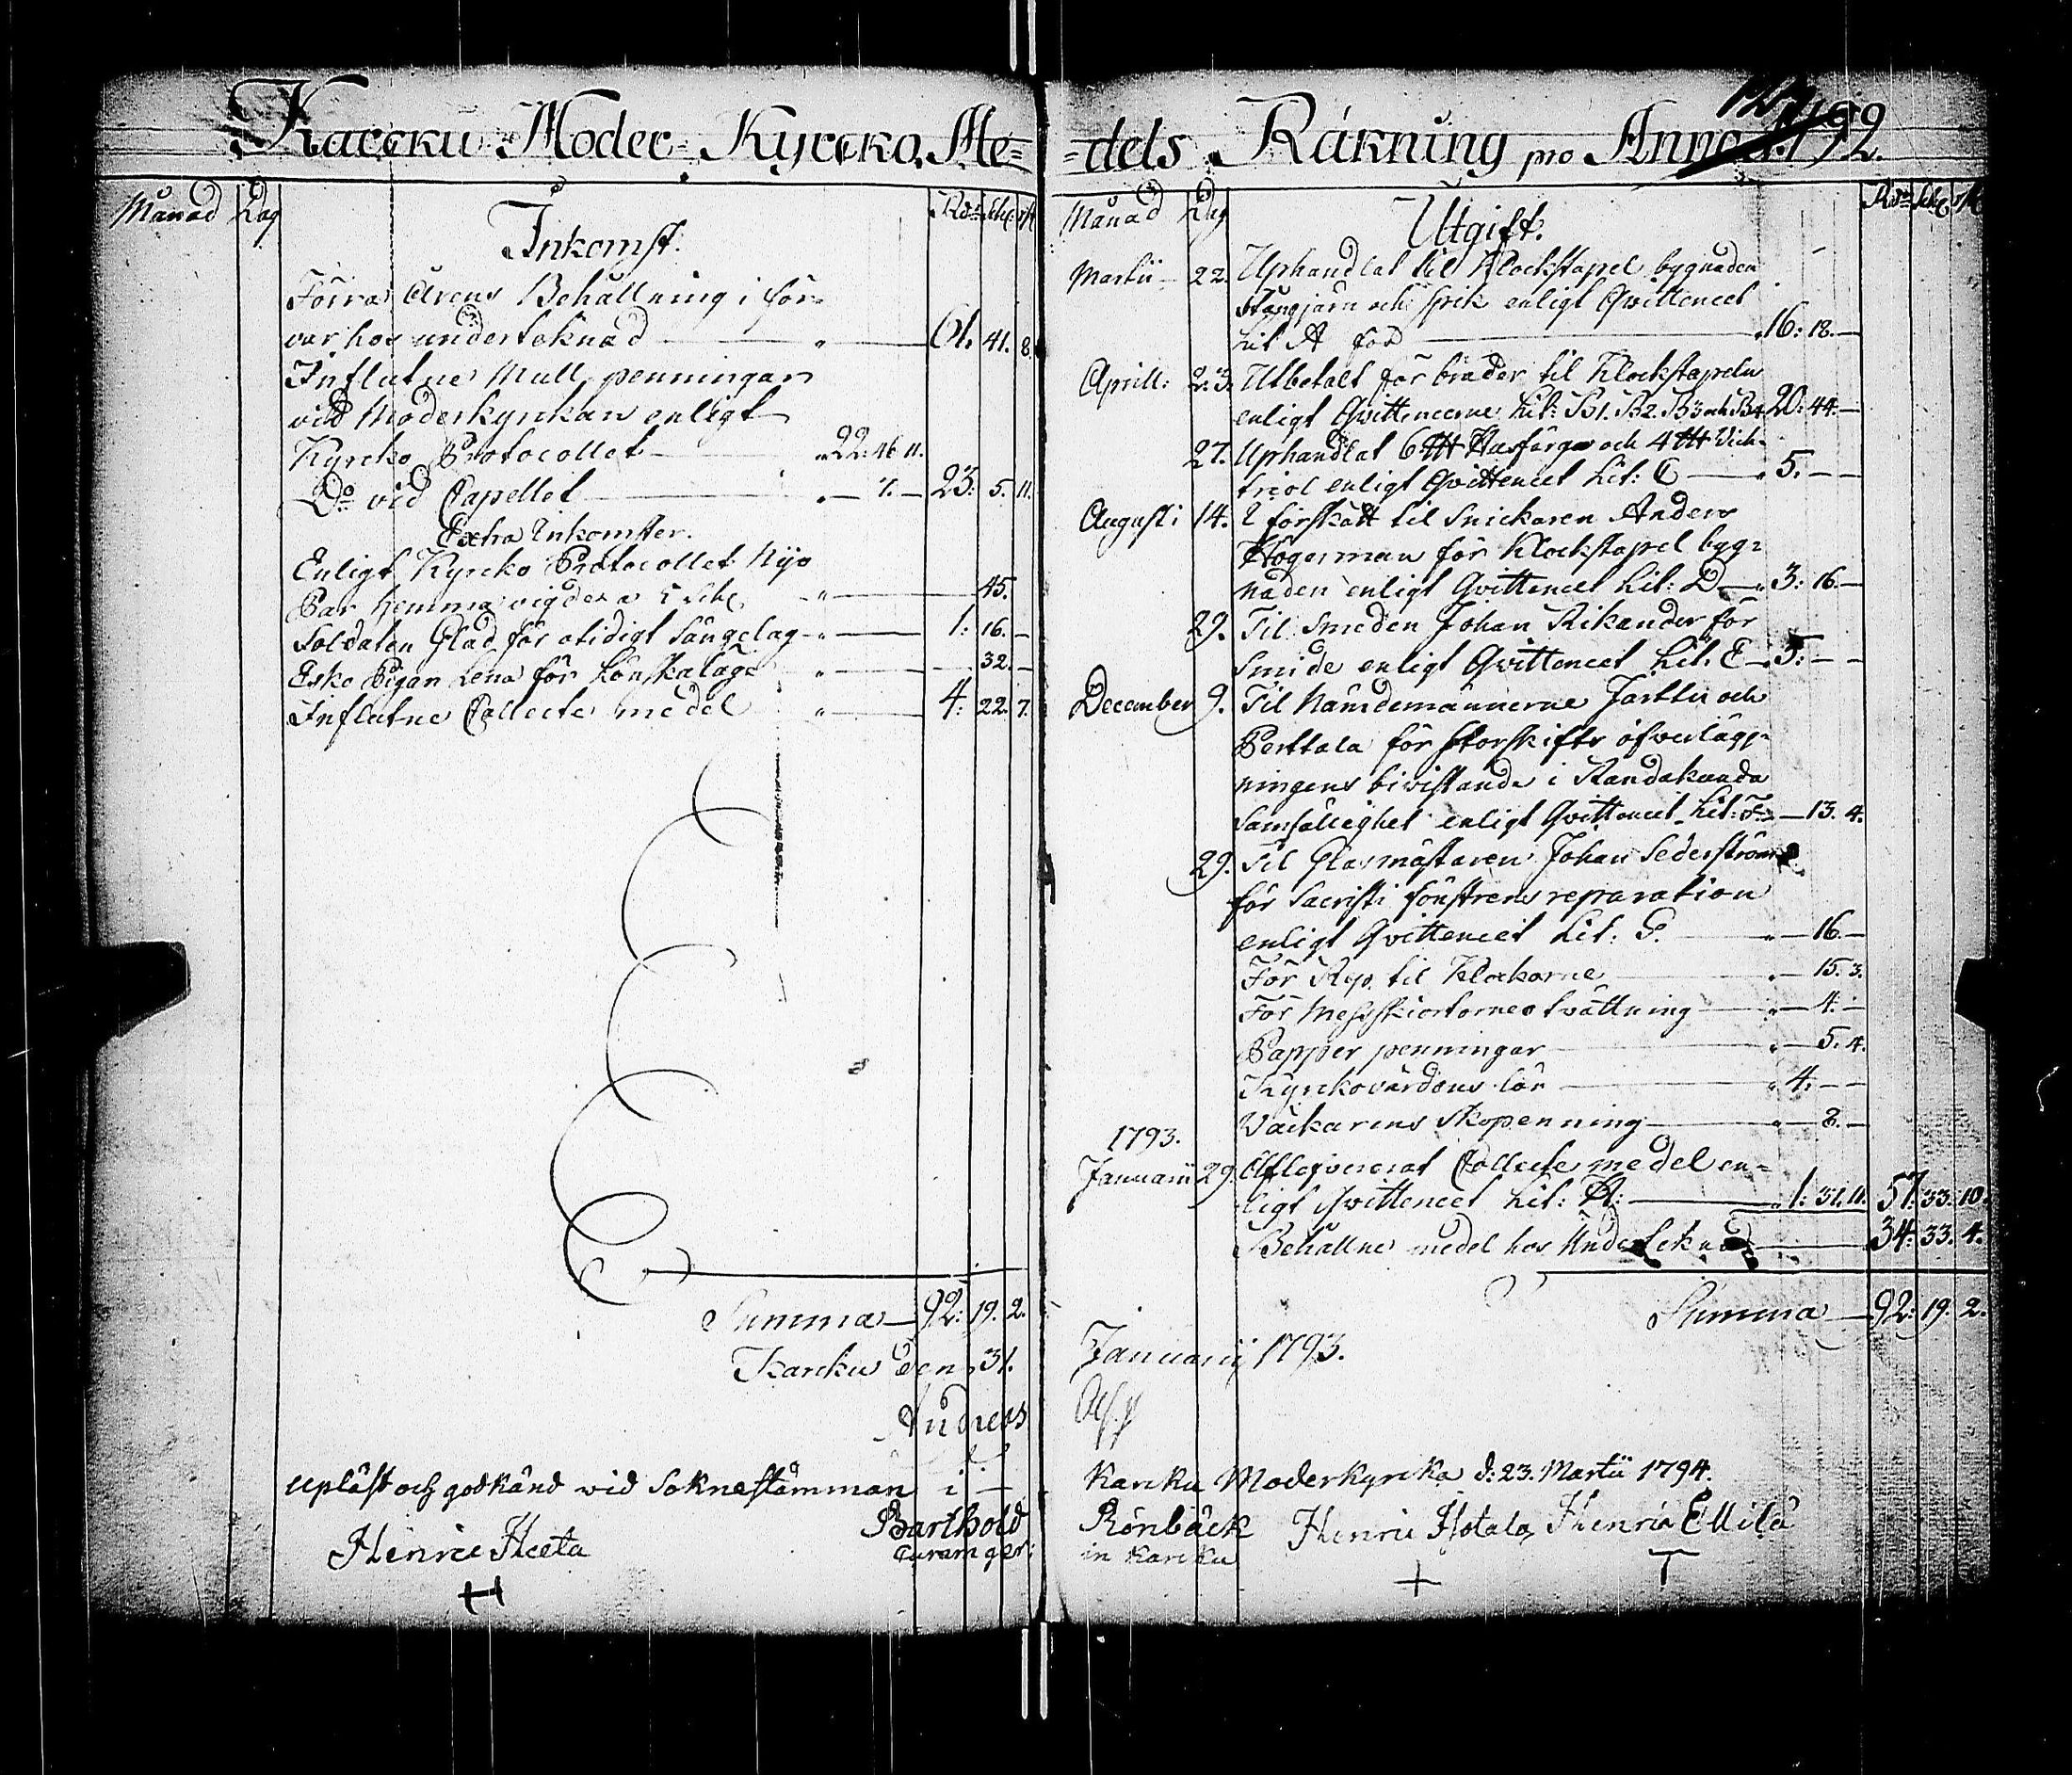 Karcku Moder-Kyrcko Me=
Månad Dag
Rdr Schl. r/st
Inkomst.
Förra Årens Behållning i för=
var hos underteknad — 61. 41. 8.
Influtne Mull penningar
vid Moderkyrkan enligt
Kyrcko Protocollet — 22: 46. 11.
Do vid Capellet — 7. — 23: 5. 11.
Extra Inkomster.
Enligt Kyrcko Protocollet Nijo
Par hemma vigde a 5 schl. — 45.
Soldaten Glad för otidigt Sängelag — 1: 16. —
Esko Pigan Lena för Lönskalage — 32. —
Influtne Collecte medel — 4: 22. 7.
Summa — 92: 19. 2.
Karcku den 31.
Andreas
upläst och godkänd vid Soknestämman i
Barthold
Henric Heeta
curam ger:
H
=dels Räkning pro Anno 1792.
Månad Dag
Utgift.
Rdr Schl. r/st
Martii 22. Uphandlat til Klockstapel bygnaden
Stångjärn och Spik enligt Qvittencet
Lit A för — 16: 18. —
Aprill: 23. Utbetalt för bräder til Klockstapeln
enligt Qvittencerne Lit: B1. B2. B3 och B4 20: 44. —
27. Uphandlat 6 ttt Harfärga och 4 ttt Vich=
triol enligt Qvittencet Lit: C — 5. —
Augusti 14. I förskått til Snickaren Anders
Högerman för Klockstapel byg=
naden enligt Qvittencet Lit: D — 3: 16. —
29. Til Smeden Johan Rikander för
Smide enligt Qvittencet Lit. E — 5: — —
December 9. Til Nämdemännerne Jarttu och
Perttala för Storskifts öfverläg=
ningens bivistande i Randakanda
Samfällighet enligt Qvittencet Lit: F. — 13. 4.
29. Til Glasmästaren Johan Sederström
för Sacristi fönstrens reparation
enligt Qvittencet Lit: G. — 16. —
För Rep til Klockorne — 15. 3.
För Messskiortornes tvättning — 4. —
Papper penningar — 5. 4.
Kyrckovärdens lön — 4: — —
Väckarens Skopenning — 8. —
1793.
Januarii 29. Aflefvererat Collecte medel en=
ligt Qvittencet Lit: H: — 1: 31. 11. 57: 33. 10.
Behållne medel hos Undertecknad — 34: 33. 4.
Summa — 92: 19. 2.
Januarij 1793.
Karcku Moderkyrka d: 23. Martii 1794.
Rönbäck Henric Hotala Henric Ellilä
in Karcku
+ T